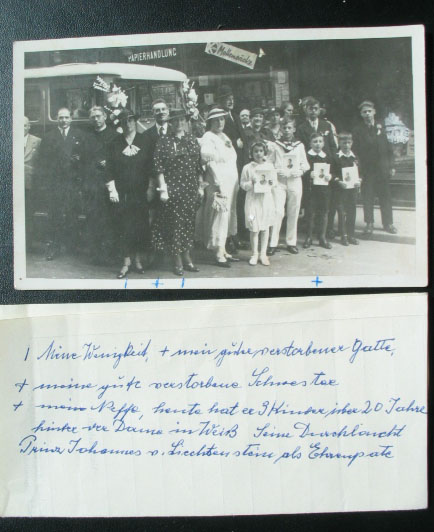 PAPIERHANDLUNG
| Meine Wenigkeit, + mein guter, verstorbener Gatte,
+ meine gute verstorbene Schwester
+ mein Neffe, heute hat er 9 Kinder, ist 20 Jahre
hinter der Dame in Weiß Seine Durchlaucht
Prinz Johannes v. Liechtenstein als Ehrenpate